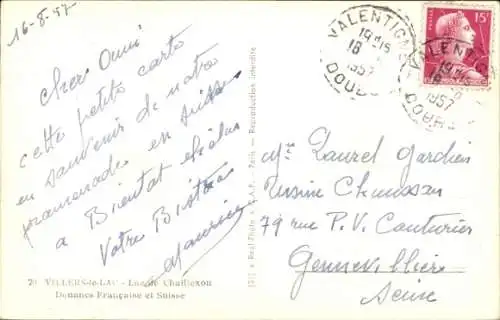 16-8-57
Cher Ami
cette petite carte
en souvenir de notre
promenade en Suisse
a Bientat
Votre
Maurice
VALENTIGNEY
19H15
18
1957
DOUBS
VALENTIGNEY
1957
DOUBS
POSTES
15F
Mr Laurel Gardien
Usine Chausson
79 rue P.V. Couturier
Gennevilliers
Seine
VILLERS-le-LAC - Lac de Chaillexon
Douanes Française et Suisse
Real-Photo
Paris. - Reproduction interdite